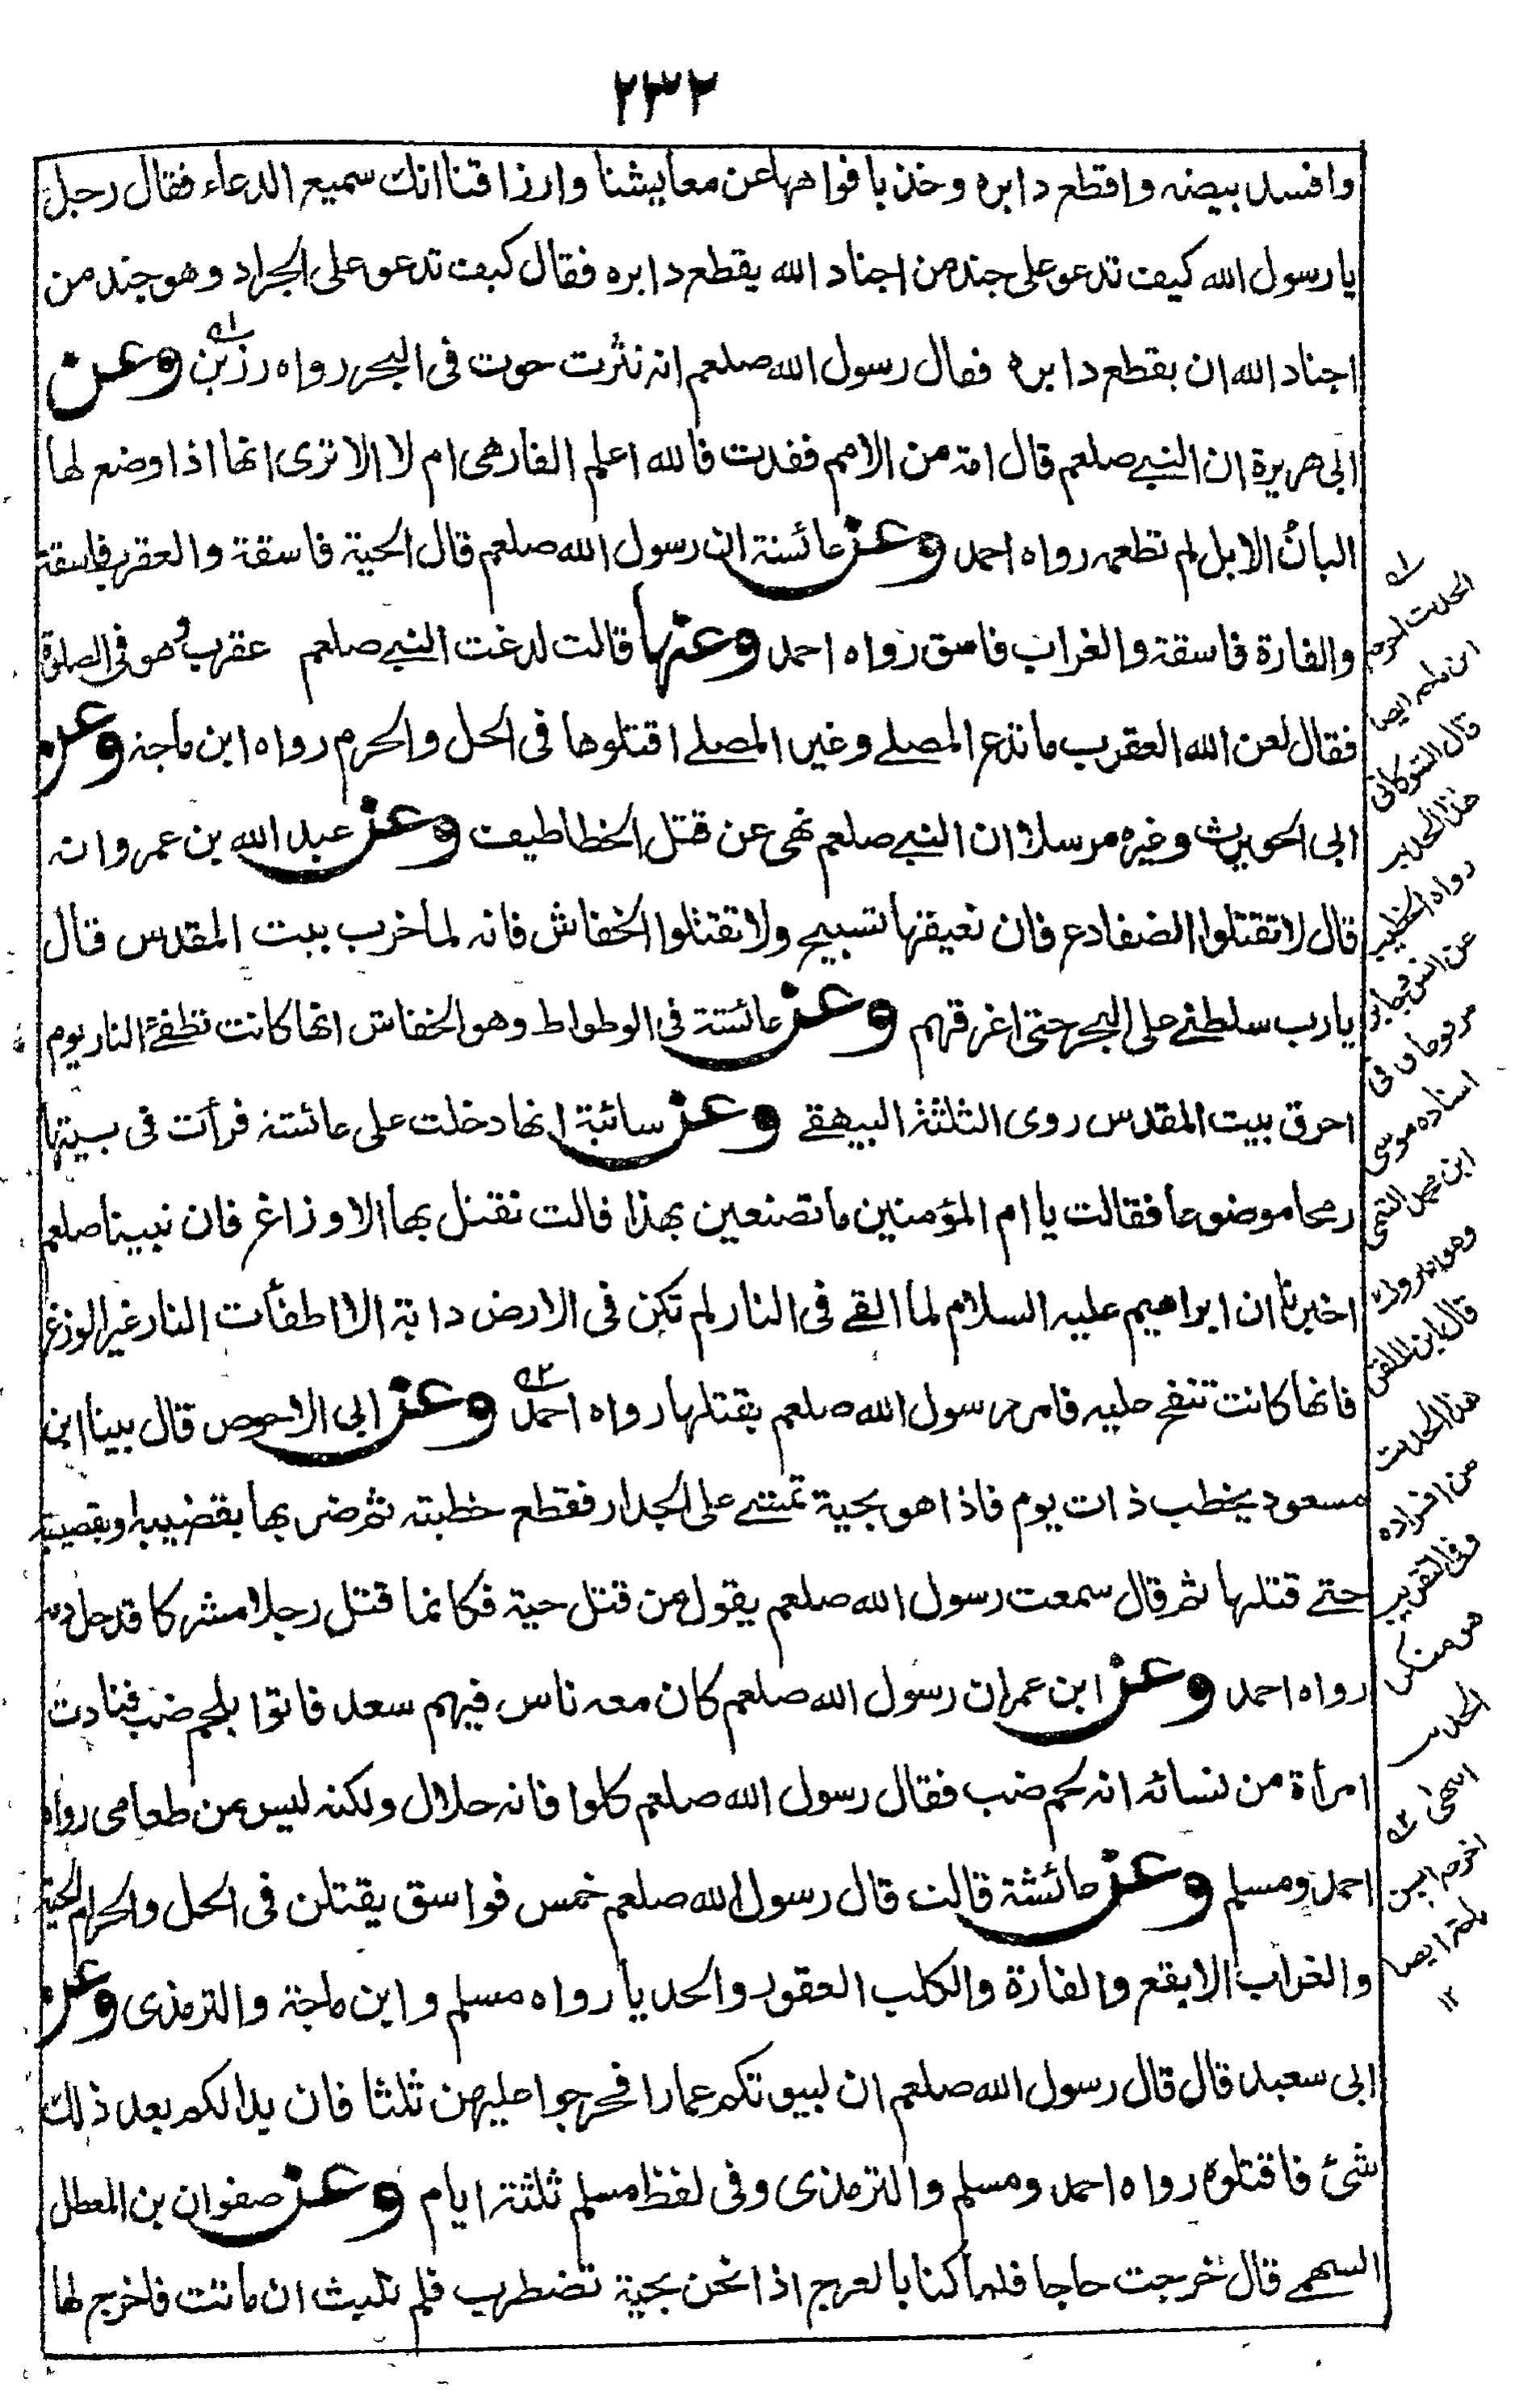 ٢٣٢
وافسد بيضه واقطع دابره وخذ بافواهها عن معايشنا وارزاقنا انك سميع الدعاء فقال رجل
يا رسول الله كيف تدعو على جند من اجناد الله يقطع دابره فقال كيف تدعو على الجراد وهو جند من
اجناد الله ان يقطع دابره فقال رسول الله صلعم انه نثرت حوت فى البحر رواه رزين وعن
ابى هريرة ان النبى صلعم قال امة من الامم فقدت فالله اعلم الفار هى ام لا الا ترى انها اذا وضع لها
البان الابل لم تطعمه رواه احمد وعن عائشة ان رسول الله صلعم قال الحية فاسقة والعقرب فاسقة
والفارة فاسقة والغراب فاسق رواه احمد وعنها قالت لدغت النبى صلعم عقرب وهو فى الصلوة
فقال لعن الله العقرب ما تدع المصلى وغير المصلى اقتلوها فى الحل والحرم رواه ابن ماجة وعن
ابى الحويرث وغيره مرسلا ان النبى صلعم نهى عن قتل الخطاطيف وعن عبد الله بن عمرو انه
قال لا تقتلوا الضفادع فان نعيقها تسبيح ولا تقتلوا الخفاش فانه لما خرب بيت المقدس قال
يا رب سلطنى على البحر حتى اغرقهم وعن عائشة فى الوطواط وهو الخفاش انها كانت تطفئ النار يوم
احرق بيت المقدس روى الثلثة البيهقى وعن سائبة انها دخلت على عائشة فرأت فى بيتها
رمحا موضوعا فقالت يا ام المؤمنين ما تصنعين بهذا قالت نقتل بها الاوزاغ فان نبينا صلعم
اخبرنا ان ابراهيم عليه السلام لما القى فى النار لم تكن فى الارض دابة الا اطفأت النار غير الوزغ
فانها كانت تنفخ عليه فامر رسول الله صلعم بقتلها رواه احمد وعن ابى الاحوص قال بينا ابن
مسعود يخطب ذات يوم فاذا هو بحية تمشى على الجدار فقطع خطبته ثم ضربها بقضيبه او بقصبة
حتى قتلها ثم قال سمعت رسول الله صلعم يقول من قتل حية فكانما قتل رجلا مشركا قد حل دمه
رواه احمد وعن ابن عمر ان رسول الله صلعم كان معه ناس فيهم سعد فاتوا بلحم ضب فنادت
امرأة من نسائه انه لحم ضب فقال رسول الله صلعم كلوا فانه حلال ولكنه ليس من طعامى رواه
احمد ومسلم وعن عائشة قالت قال رسول الله صلعم خمس فواسق يقتلن فى الحل والحرام الحية
والغراب الابقع والفارة والكلب العقور والحديا رواه مسلم وابن ماجة والترمذى وعن
ابى سعيد قال قال رسول الله صلعم ان لبيوتكم عمارا فحرجوا عليهن ثلثا فان بدا لكم بعد ذلك
شئ فاقتلوه رواه احمد ومسلم والترمذى وفى لفظ مسلم ثلثة ايام وعن صفوان بن المعطل
السهمى قال خرجت حاجا فلما كنا بالعرج اذا نحن بحية تضطرب فلم تلبث ان ماتت فاخرج لها
١
الحديث اخرجه
ابن ماجه ايضا
قال الشوكانى
هذا الحديث
رواه الخطيب
عن انس وجابر
مرفوعا وفى
اسناده موسى
ابن محمد التيمى
قال ابن الملقن
هذا الحديث
من افراده
وفى التقريب
هو منكر
الحديث
انتهى ٢
اخرجه ابن
ماجة ايضا
١٢